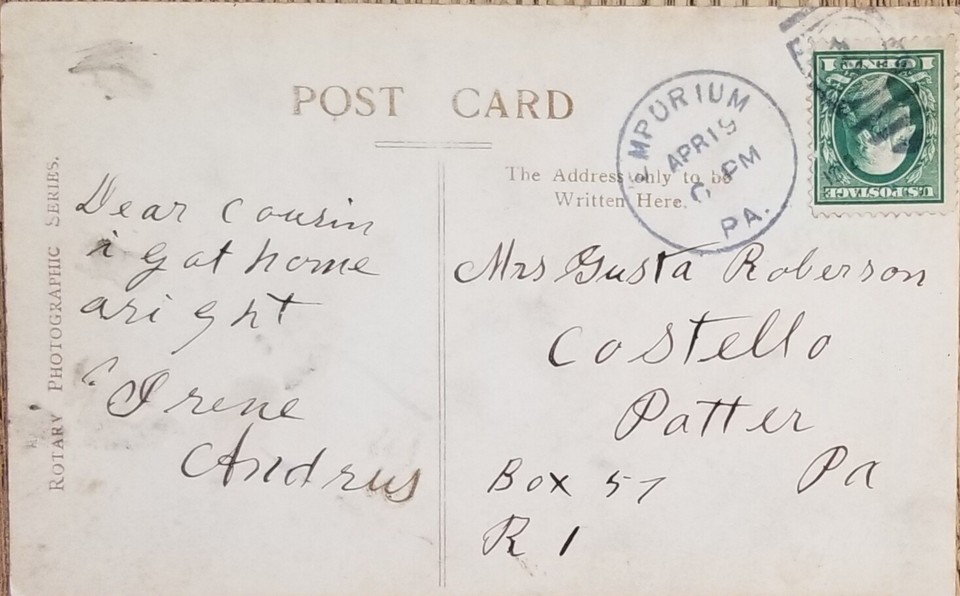 POST CARD
ROTARY PHOTOGRAPHIC SERIES.
The Address only to be
Written Here.
EMPORIUM
APR 19
6 PM
PA.
ONE
U.S. POSTAGE
Dear cousin
i got home
aright
Irene
Andrus
Mrs Gusta Roberson
Costello
Patter
Pa
Box 57
R 1